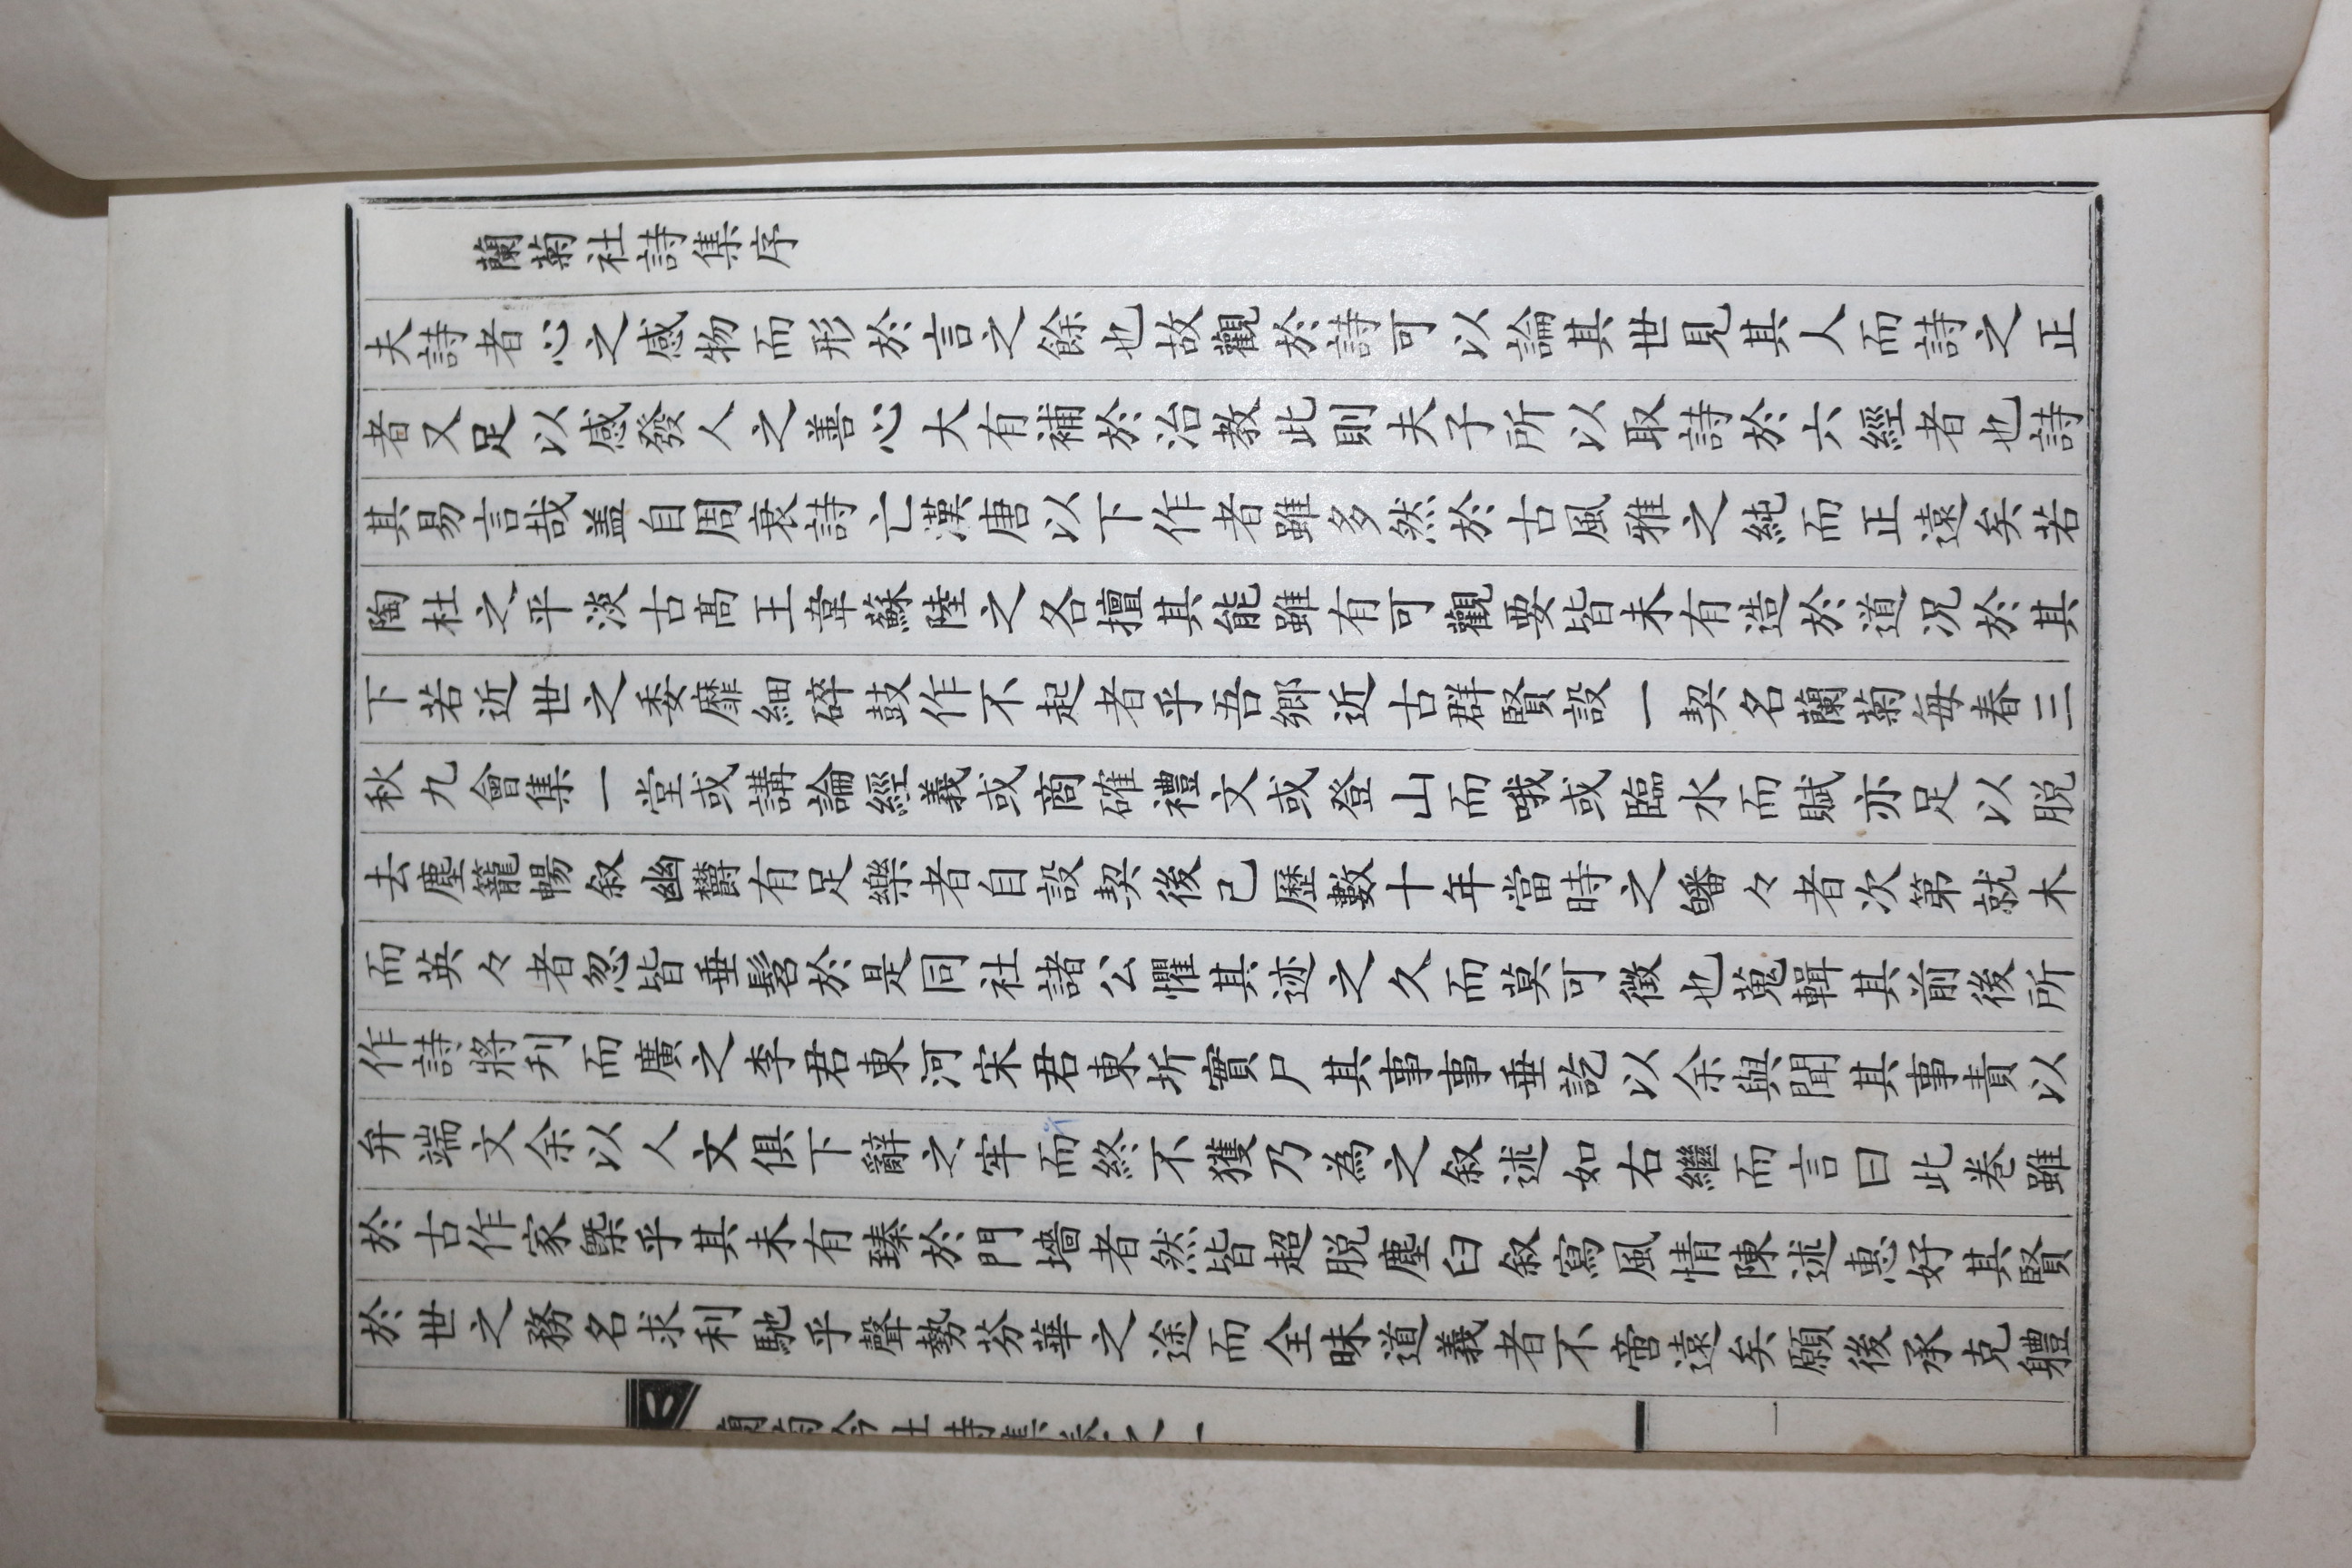 蘭菊社詩集序
夫詩者心之感物而形於言之餘也故觀於詩可以論其世見其人而詩之正
者又足以感發人之善心大有補於治教此則夫子所以取詩於六經者也詩
其易言哉盖自周衰詩亡漢唐以下作者雖多然於古風雅之純而正遠矣若
陶杜之平淡古高王韋蘇陸之各擅其能雖有可觀要皆未有造於道况於其
下若近世之委靡細碎鼓作不起者乎吾鄉近古群賢設一契名蘭菊每春三
秋九會集一堂或講論經義或商確禮文或登山而哦或臨水而賦亦足以脱
去塵籠暢叙幽欝有足樂者自設契後已歷數十年當時之皤々者次第就木
而英々者忽皆垂髫於是同社諸公懼其迹之久而莫可徴也蒐輯其前後所
作詩將刋而廣之李君東河宋君東圻實尸其事事垂訖以余與聞其事責以
弁端文余以人文俱下辭之牢而終不獲乃為之叙述如右繼而言曰此巻雖
於古作家槩乎其未有臻於門墻者然皆超脱塵臼叙寫風情陳述惠好其賢
於世之務名求利馳乎聲勢芬華之途而全昧道義者不啻遠矣願後承克軆
蘭菊吟社詩集卷之一
一